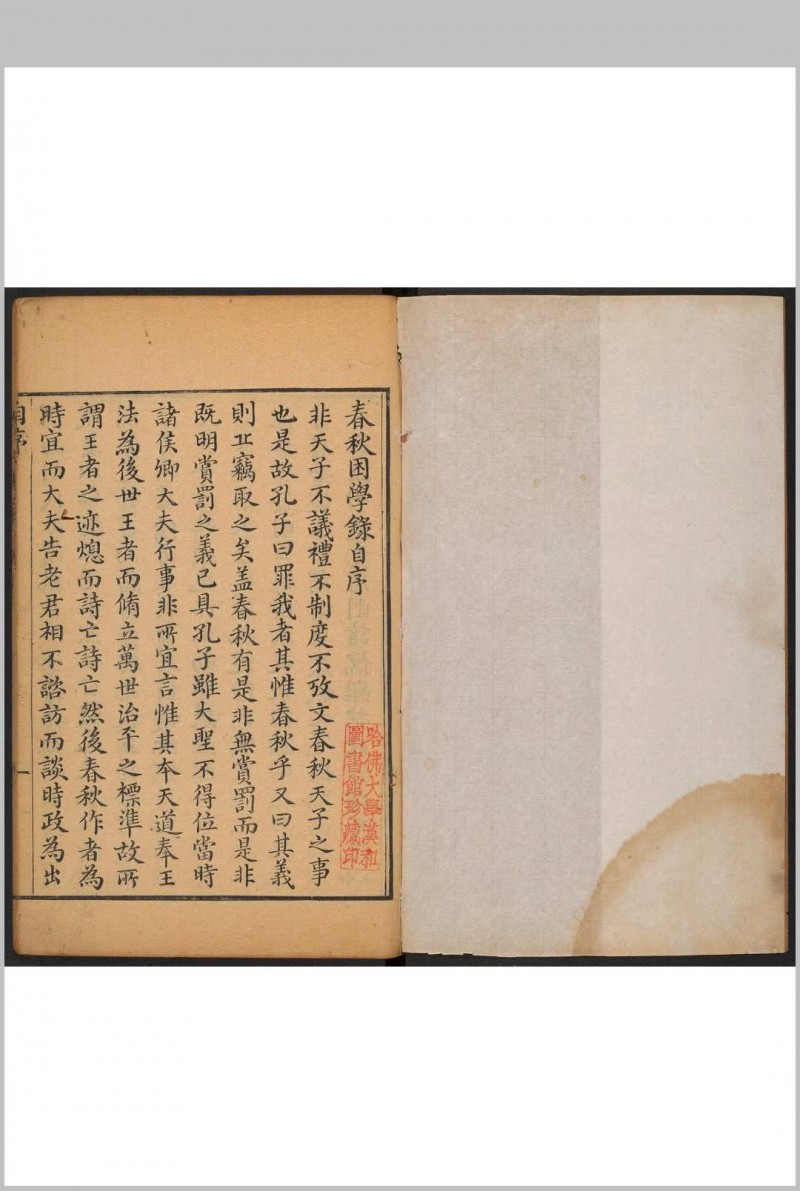 春秋困學錄自序
非天子不議禮不制度不攷文春秋天子之事
也是故孔子曰罪我者其惟春秋乎又曰其義
則丘竊取之矣盖春秋有是非無賞罰而是非
既明賞罰之義已具孔子雖大聖不得位當時
諸侯卿大夫行事非所宜言惟其本天道奉王
法為後世王者而脩立萬世治平之標準故所
謂王者之迹熄而詩亡詩亡然後春秋作者為
時宜而大夫告老君相不諮訪而談時政為出
自序
一
哈佛大學漢和
圖書館珍藏印